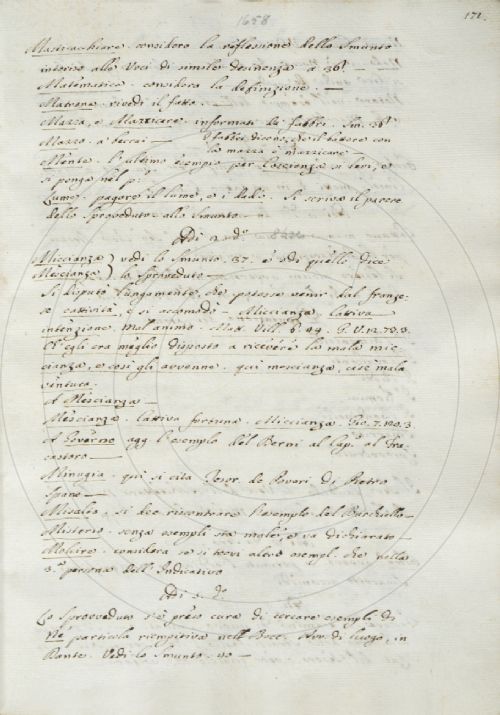 1658
171.
Mastacchiare. considero la riflessione dello Smunto
intorno alle Voci di simile desinenza a 36. —
Matematica. considero la definizione —
Matrona rivedi il fatto. —
Mazza, e Mazzicare informati da' fabbri. Sm. 36
Mazzo. a' beccai — I fabbri dicono, che il battere con
la mazza è mazzicare —
Mente. l'ultimo esempio per Coscienza si levi, e
si ponga nel p.
Lume. pagare il lume, e i dadi. Si scriva il parere
dello Sproveduto allo Smunto —
Adi 2. d.o
Miccianza) vedi lo Smunto 37. e odi quello dice
Mescianza) lo Sproveduto —
Si disputò lungamente, che potesse venir dal franze-
se cattivia, e si accomodò — Miccianza, cattiva
intenzione, mal animo. Matt. Vill. 6. 49. G. V. 12. 73. 3.
egli era meglio disposto a ricevere la mala mic-
cianza, e così gli avvenne. qui mescianza, cioè mala
ventura.
A Mescianza —
Mescianza. Cattiva fortuna. Miccianza. Gio. 7. 120. 3
A Governo agg. l'esempio del Berni al Cap. al Fra-
castoro —
Minugia. qui si cita Tesor. de Poveri di Pietro
Spano —
Misalta. si dee riscontrare l'esempio del Burchiello —
Misterio. senza esempli sta male, e va dichiarato —
Molcire. considera se si trovi altro esempl. che nella
3.a persona dell'Indicativo
Adi 5. d.o
Lo Sproveduto s'è preso cura di cercare esempli di
Ne particola riempitiva nell Bocc. Nov. di luogo, in
Dante. Vedi lo Smunto. 40 —